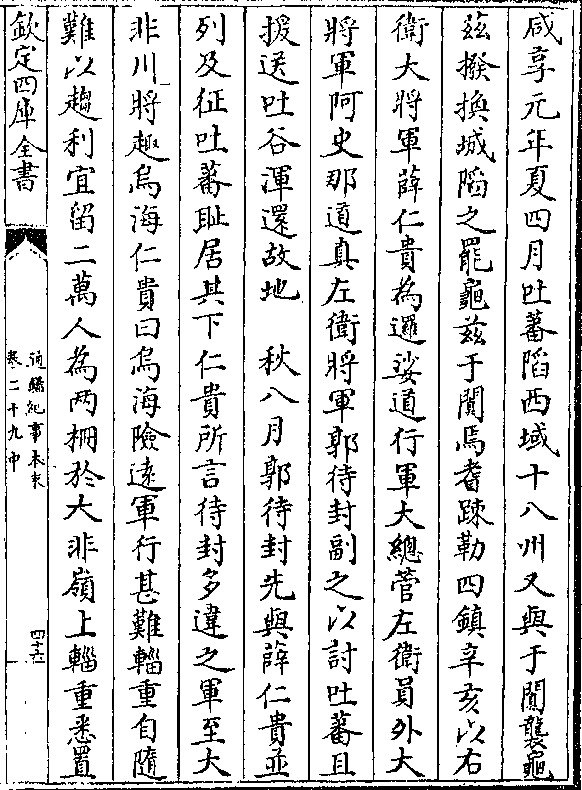 咸享元年夏四月吐蕃陷西域十八州又與于闐襲龜
兹撥換城陷之罷龜兹于闐焉耆踈勒四鎮辛亥以右
衛大將軍薛仁貴為邏娑道行軍大總管左衛員外大
將軍阿史那道真左衛將軍郭待封副之以討吐蕃且
援送吐谷渾還故地　秋八月郭待封先與薛仁貴並
列及征吐蕃耻居其下仁貴所言待封多違之軍至大
非川將趣烏海仁貴曰烏海險遠軍行甚難輜重自隨
難以趨利宜留二萬人為两柵於大非嶺上輜重悉置
欽定四庫全書
通鑑紀事本末
卷二十九中
四十六